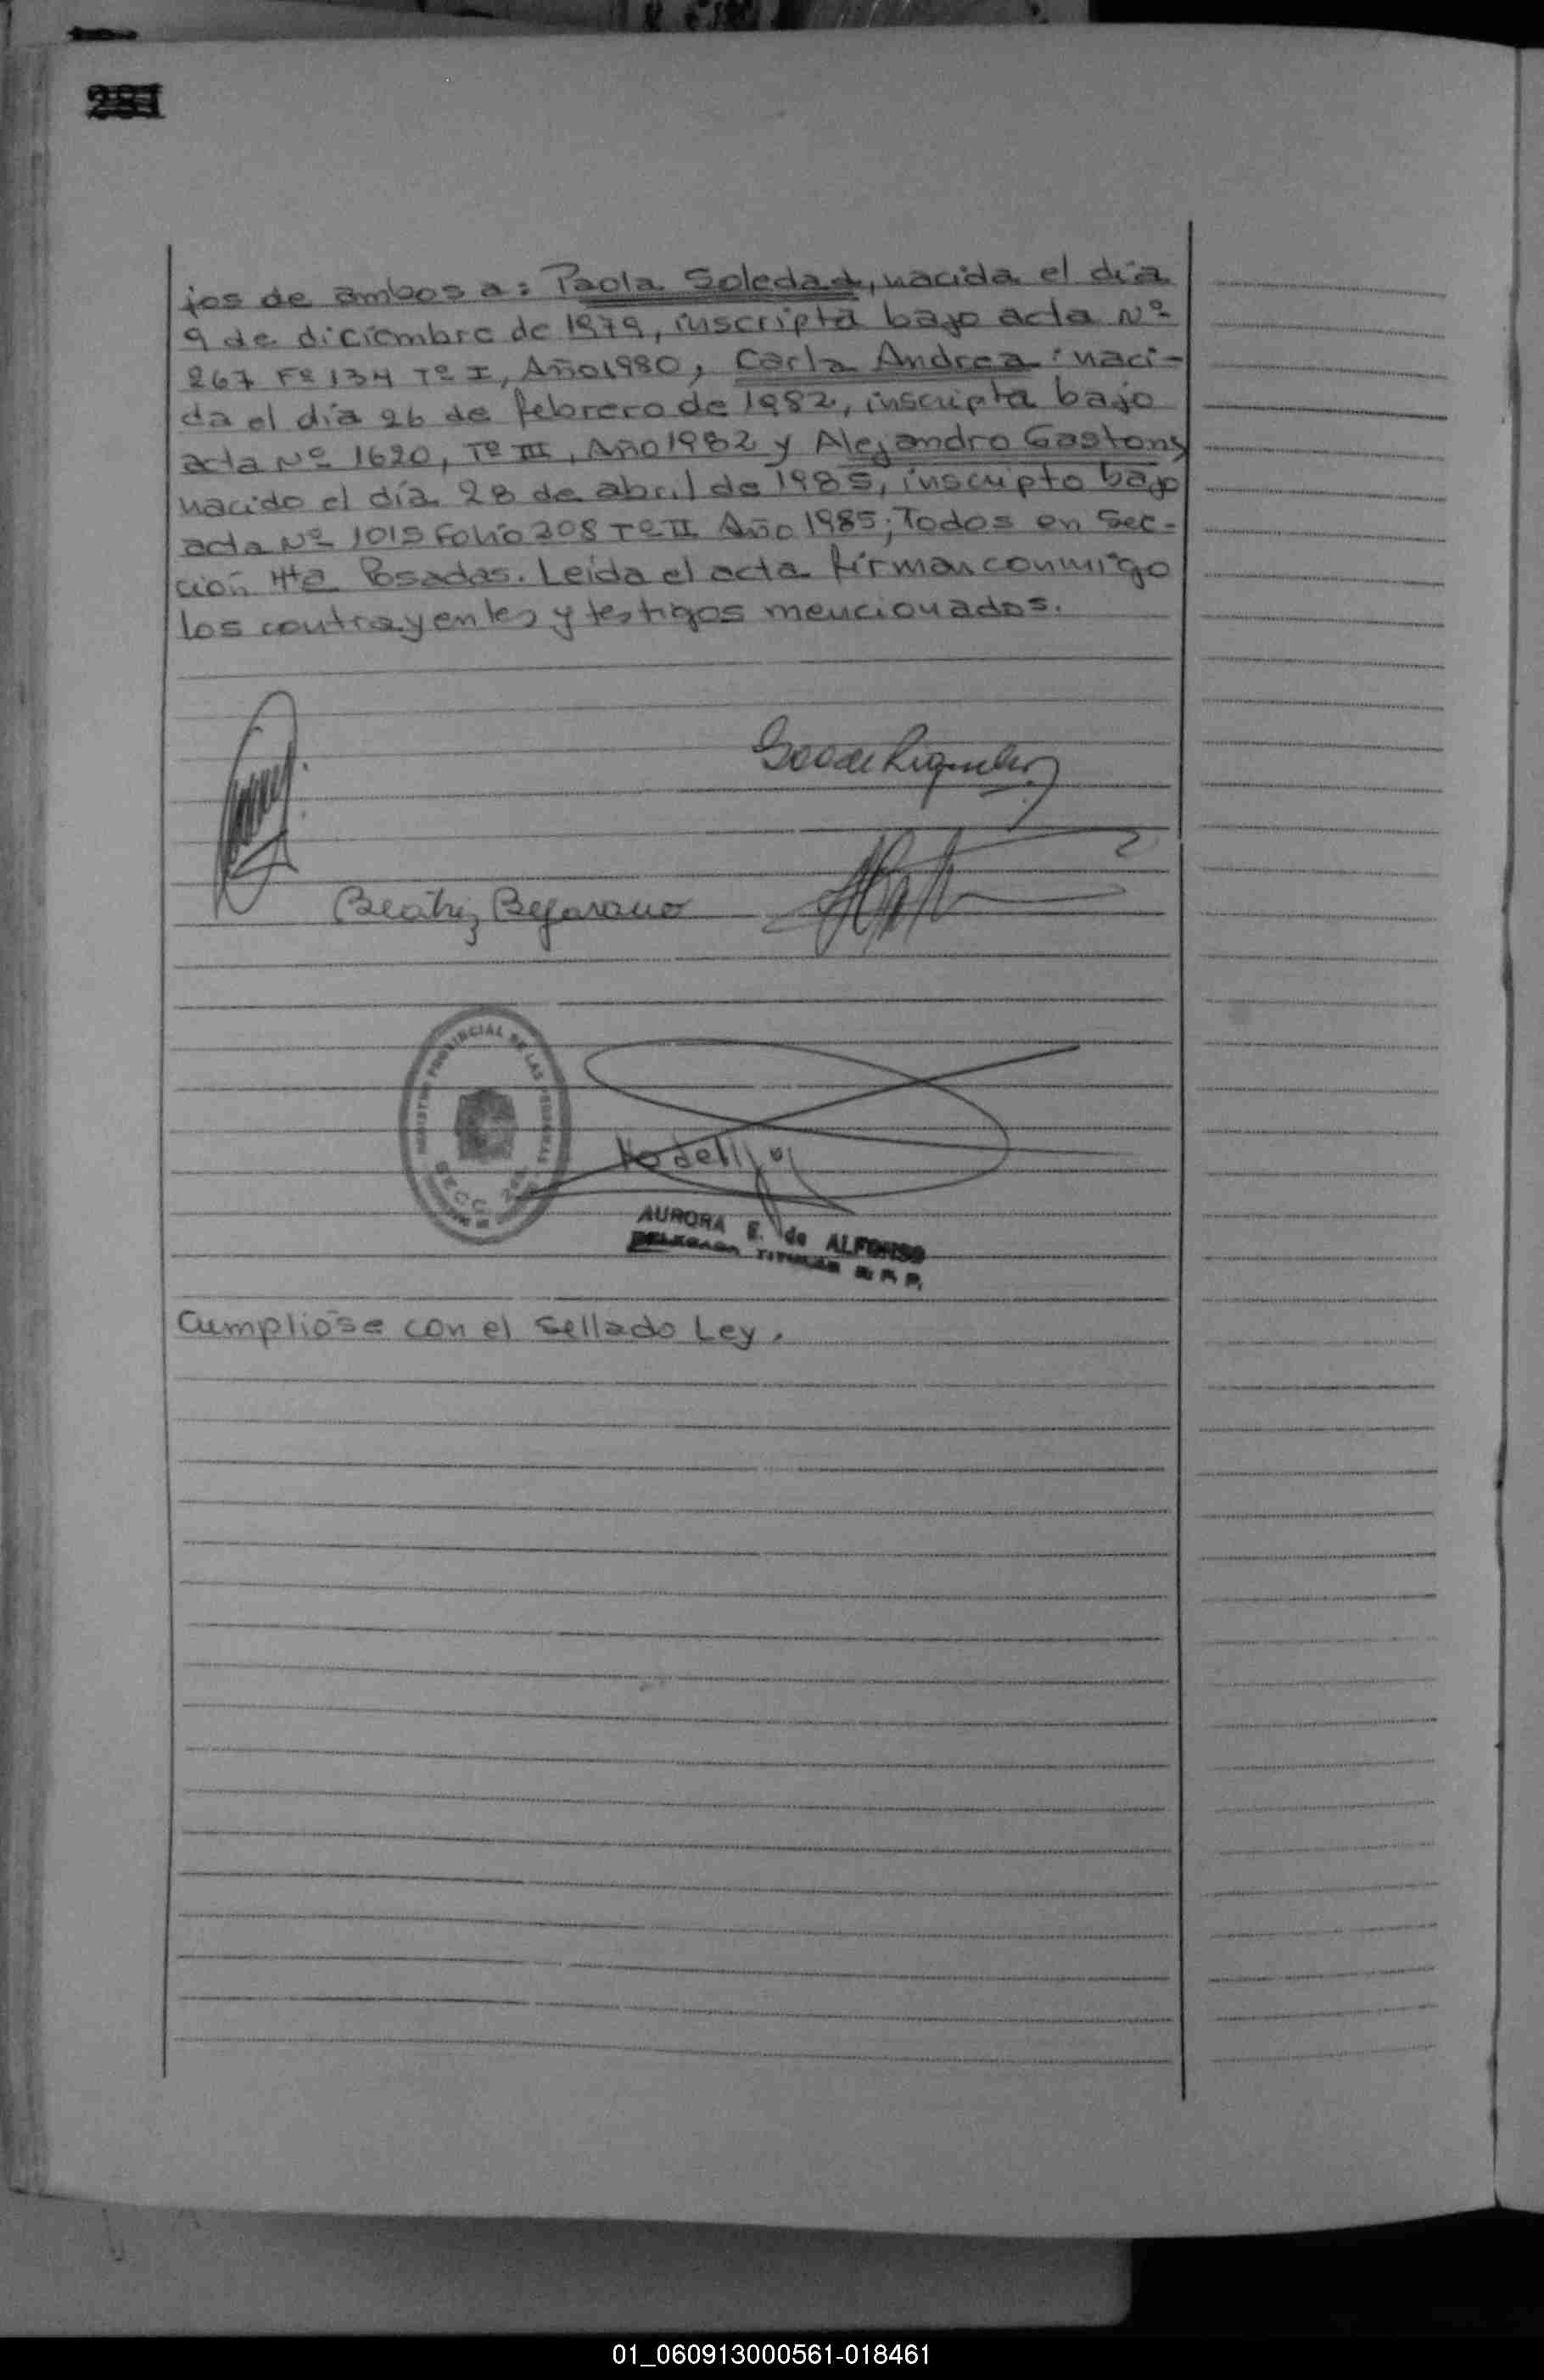 281
jos de ambos a: Paola Soledad, nacida el día
9 de diciembre de 1979, inscripta bajo acta Nº
267 Fº 134 Tº I, Año 1980, Carla Andrea: naci-
da el día 26 de febrero de 1982, inscripta bajo
acta Nº 1620, Tº III, Año 1982 y Alejandro Gaston,
nacido el día 28 de abril de 1985, inscripto bajo
acta Nº 1015 Folio 208 Tº II Año 1985; Todos en Sec-
ción 4ta Posadas. Leída el acta firman conmigo
los contrayentes y testigos mencionados.
Beatriz Bejarano
REGISTRO PROVINCIAL DE LAS PERSONAS
SECC.
AURORA E. de ALFONSO
DELEGADA TITULAR R. P. P.
Cumplióse con el sellado Ley.
01_060913000561-018461